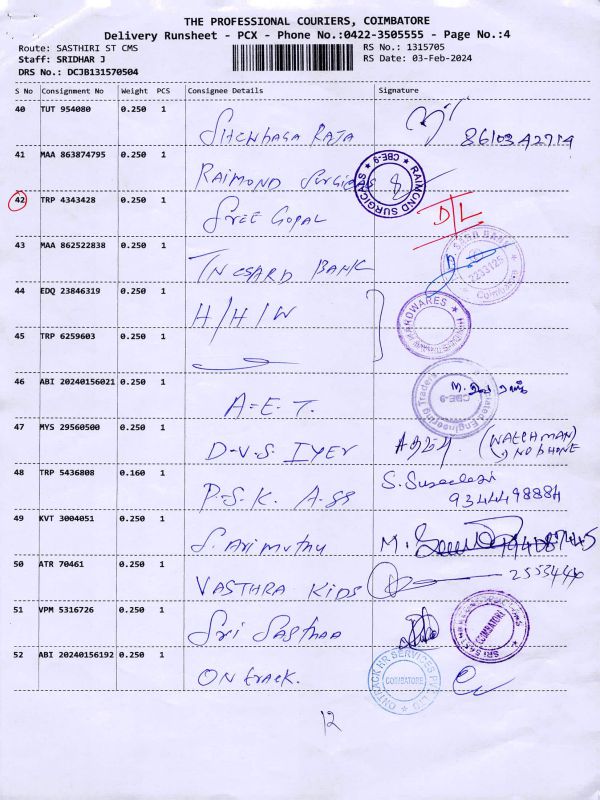 THE PROFESSIONAL COURIERS, COIMBATORE
Delivery Runsheet - PCX - Phone No.:0422-3505555 - Page No.:4
Route: SASTHIRI ST CMS RS No.: 1315705
Staff: SRIDHAR J RS Date: 03-Feb-2024
DRS No.: DCJB131570504
S No Consignment No Weight PCS Consignee Details Signature
40 TUT 954080 0.250 1
SHENBAGA RAJA
41 MAA 863874795 0.250 1
RAIMOND SURGICALS RAIMOND SURGICALS CBE-9
42 TRP 4343428 0.250 1
SREE GOPAL D/L
43 MAA 862522838 0.250 1
TNCSARD BANK 2233125 Coimbatore
44 EDQ 23846319 0.250 1
H/H/W HARDWARES
45 TRP 6259603 0.250 1
46 ABI 20240156021 0.250 1
A.E.T. Associated Engineering Traders CBE-9
47 MYS 29560500 0.250 1
D.V.S. IYER (WATCHMAN)
NO PHONE
48 TRP 5436808 0.160 1
P.S.K. S.
9344498884
49 KVT 3004051 0.250 1
S. Arimuthu M.
50 ATR 70461 0.250 1
VASTHRA KIDS
51 VPM 5316726 0.250 1
Sri Sasthaa (COIMBATORE)
52 ABI 20240156192 0.250 1
ON track. ONTRACK HR SERVICES PVT LTD COIMBATORE
12